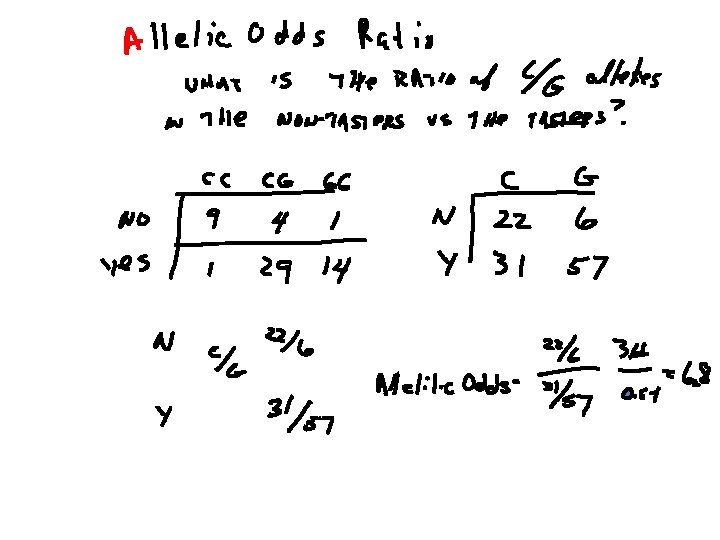 Allelic Odds Ratio
WHAT IS THE RATIO of C/G alleles
IN THE NON-TASTERS VS THE TASTERS?
CC CG GG
NO 9 4 1
yes 1 29 14
C G
N 22 6
Y 31 57
N C/G 22/6
Y 31/57
Allelic Odds = 22/6 / 31/57 = 6.8